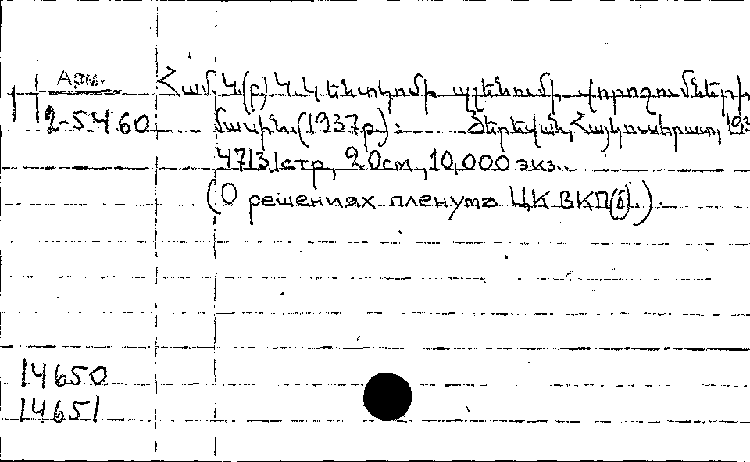 Арм. Համ.Կ(բ)Կ.Կենտկոմի պլենումի որոշումների
2-5460 մասին.(1937թ): Յերեվան, Հայկուսհրատ, 193
47131стр, 20см, 10,000 экз.
(О решениях пленума ЦК ВКП(б).)
14650
14651